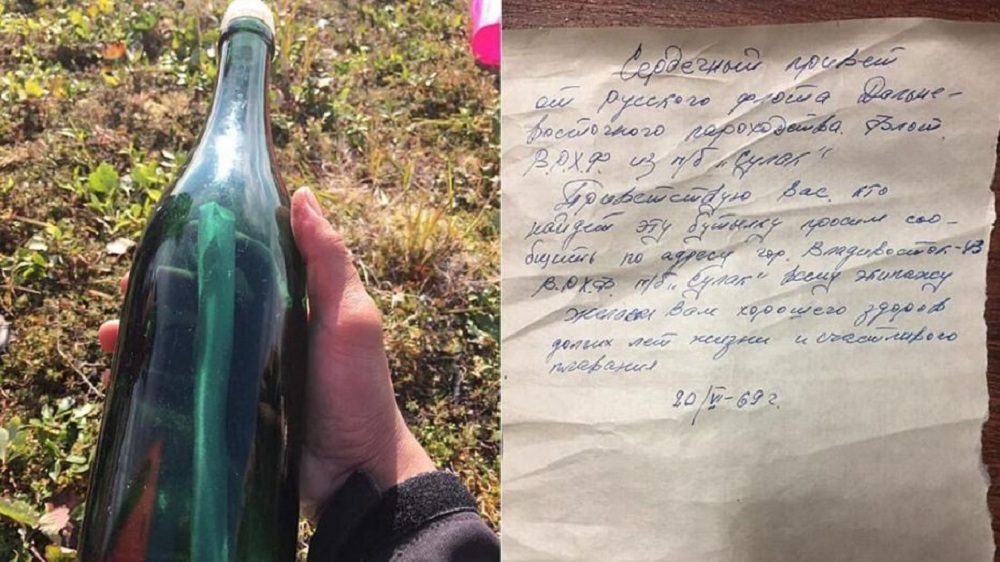 Сердечный привет
от русского флота Дальне-
восточного пароходства. Флот.
В.Р.Х.Ф. из п/б „Сулак"
Приветствую Вас, кто
найдет эту бутылку просим соо-
бщить по адресу гор. Владивосток-43
В.Р.Х.Ф. п/б „Сулак" всему экипажу
желаем Вам хорошего здоров
долгих лет жизни и счастливого
плавания
20/VI-69 г.